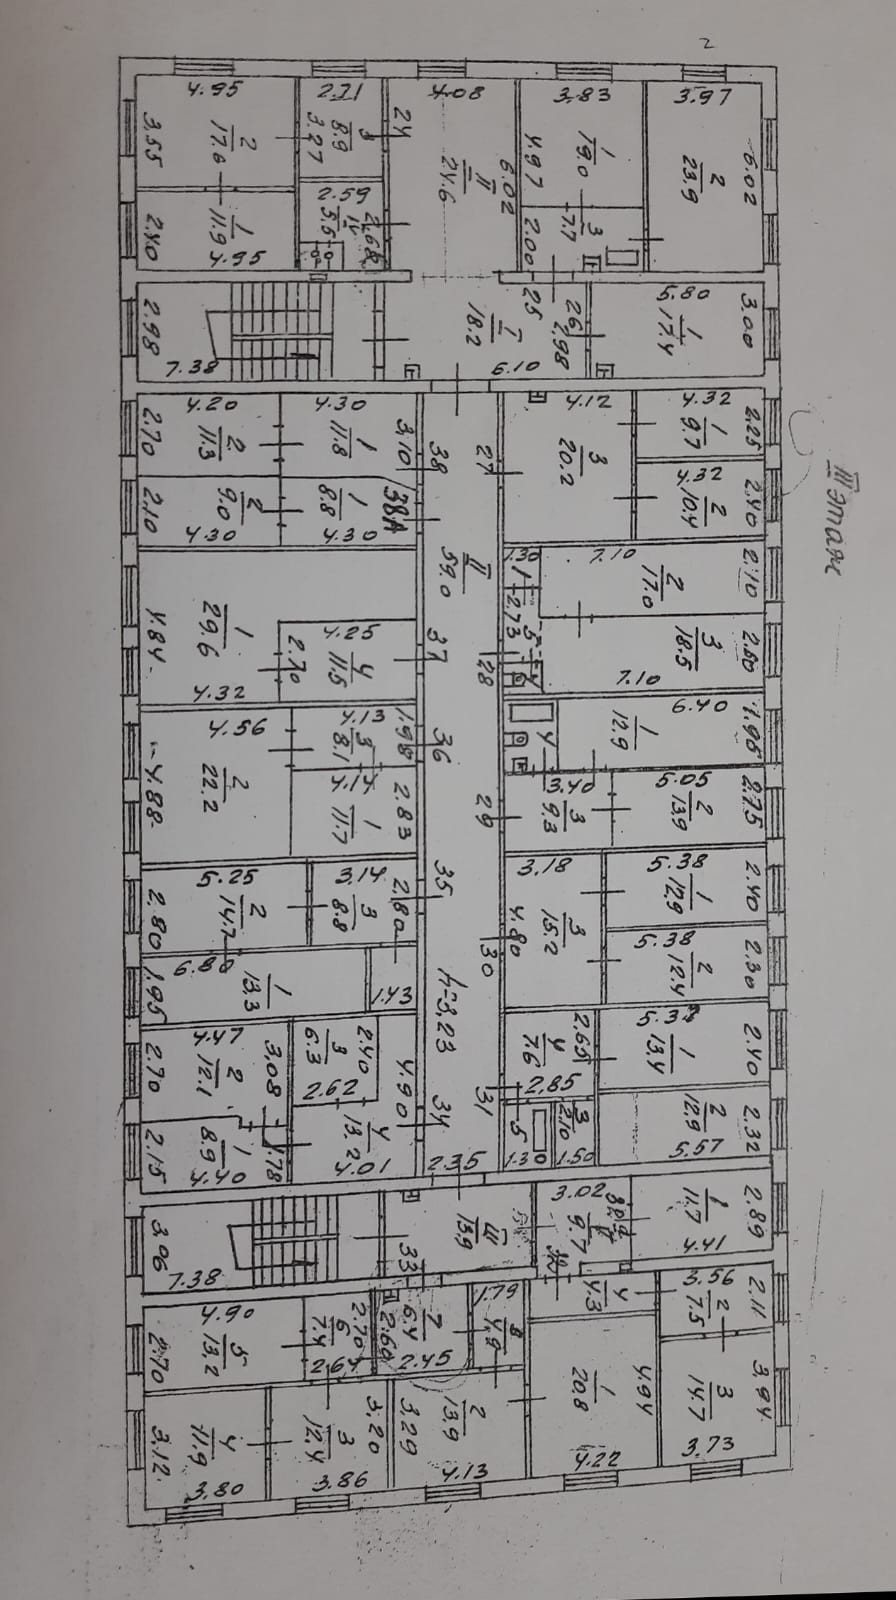 2
III этаж
4.95
2.71
4.08
3.83
3.97
3.55
2
17.6
3
8.9
3.27
24
II
24.6
6.02
4.97
1
19.0
2
23.9
6.02
2.40
1
11.9
4.95
2.59
IV
5.5
2.00
3
7.7
2.98
7.38
I
18.2
25
26
2.98
6.10
5.80
1
17.4
3.00
4.20
2
11.3
2.70
4.30
1
11.8
3.10
38
27
4.12
3
20.2
4.32
1
9.7
2.25
2.10
2
9.0
4.30
1
8.8
4.30
38А
4.32
2
10.4
2.40
II
59.0
1.30
1
2.73
7.10
2
17.0
2.10
4.84
1
29.6
4.32
4.25
4
11.5
2.70
37
28
5
3
18.5
7.10
4.56
2
22.2
4.88
4.13
3
8.1
1.98
36
4
1
12.9
6.40
1.96
4.14
1
11.7
2.83
29
3.40
3
9.3
5.05
2
13.9
2.75
5.25
2
14.7
2.80
3.14
3
8.8
2.80
35
3.18
3
15.2
4.80
30
5.38
1
12.9
2.40
5.38
2
12.4
2.30
6.80
1
13.3
1.95
1.43
h=3,23
4.47
2
12.1
2.70
3.08
3
6.3
2.40
2.62
4.90
34
31
4
7.6
2.65
2.85
1
13.4
2.40
2.15
1
8.9
4.40
1.78
4
13.2
4.01
2.35
5
1.30
3
2.10
1.50
2
12.9
5.57
2.32
3.96
7.38
III
13.9
33
3.02
9.7
1
11.7
4.41
2.89
4.90
5
13.2
2.70
2.70
6
7.4
2.64
7
6.4
2.60
2.45
1.79
8
4.9
4
4.3
3.56
2
7.5
2.11
3.12
4
11.9
3.80
3
12.4
3.20
3.86
3.29
2
13.9
4.13
1
20.8
4.94
4.22
3
14.7
3.94
3.73